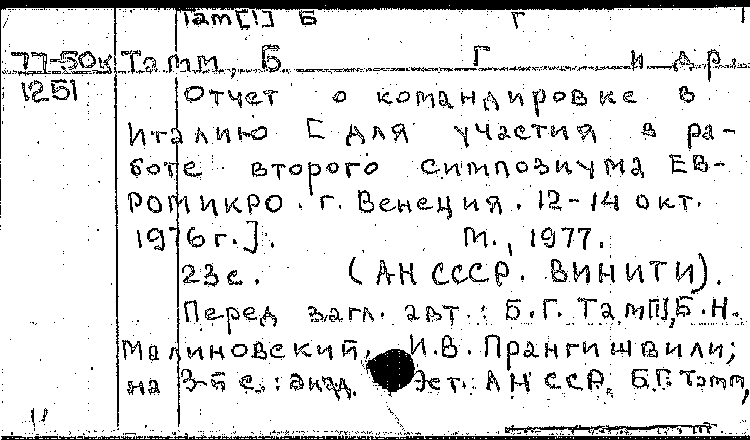 Тамм[!] Б Г
77-50к Тамм, Б Г и др.
1251 Отчет о командировке в
Италию [для участия в ра-
боте второго симпозиума ЕВ-
РОМИКРО. г. Венеция. 12-14 окт.
1976 г.]. М., 1977.
23 с. (АН СССР. ВИНИТИ).
Перед загл. авт.: Б.Г. Тамм[!], Б.Н.
Малиновский, И.В. Прангишвили;
на 3-й с.: акад. Эст. АН ССР. Б.Г. Тамм,